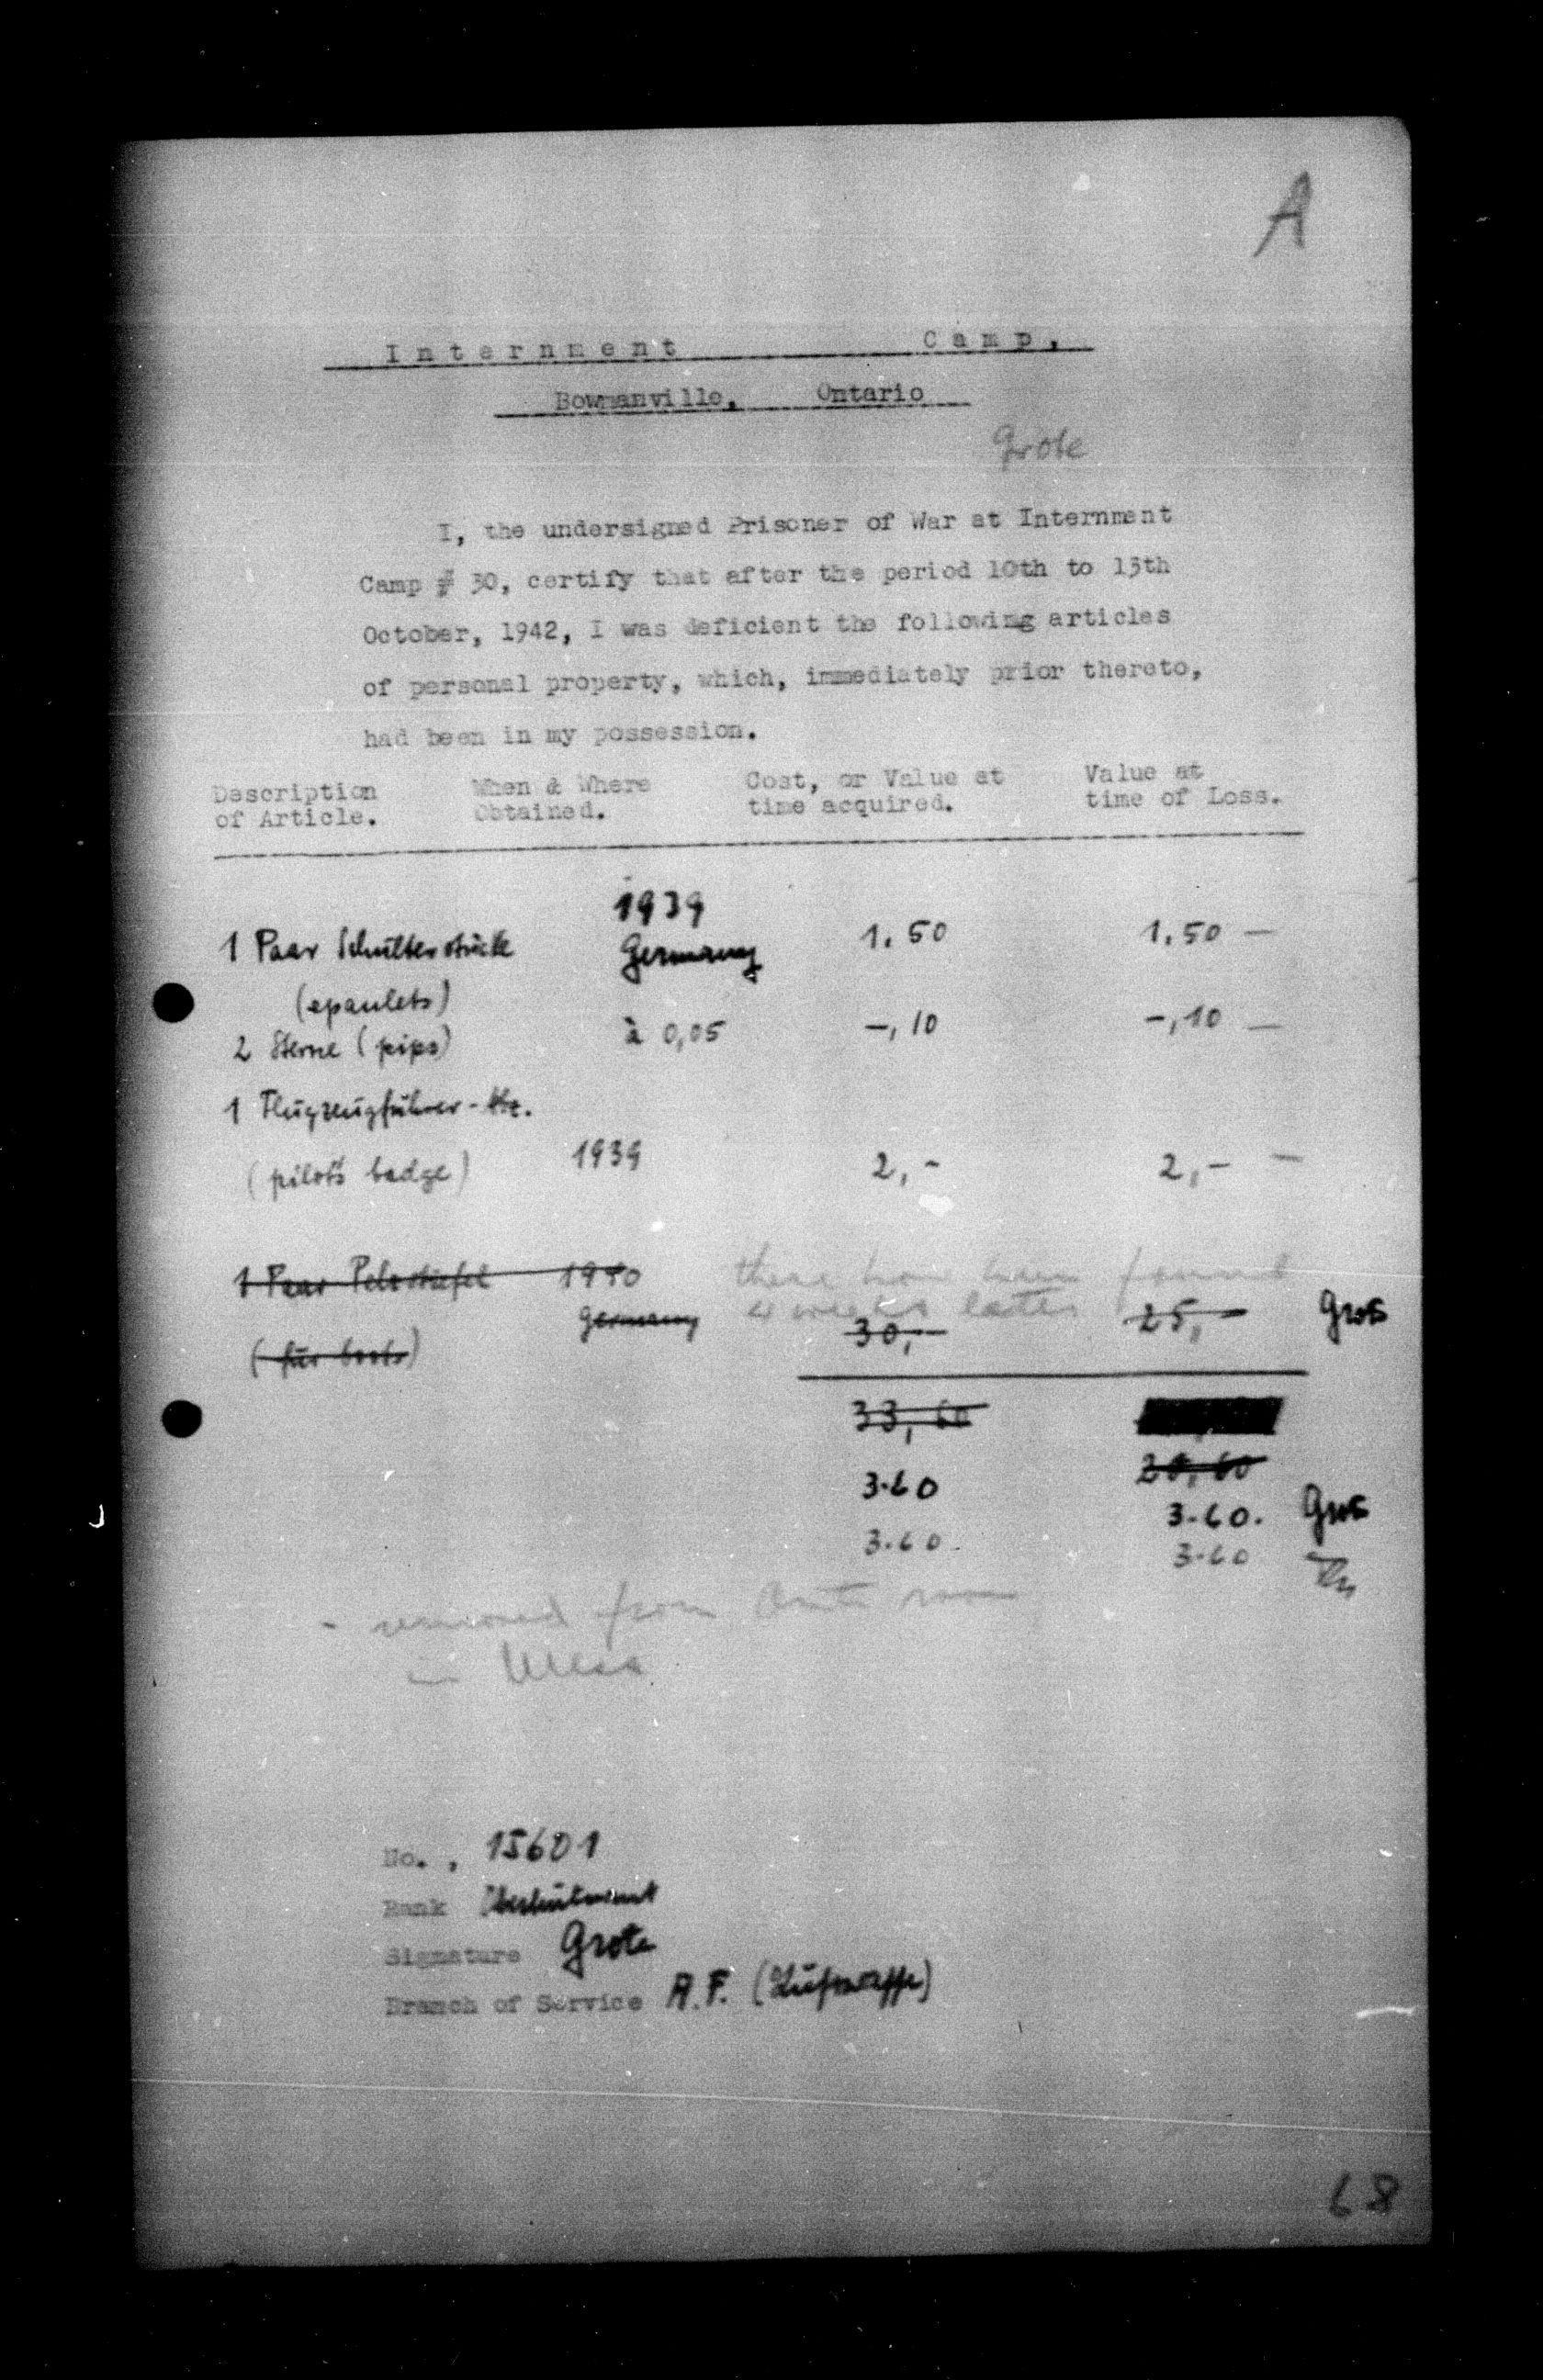 A
Internment Camp,
Bowmanville, Ontario
Grote
I, the undersigned Prisoner of War at Internment
Camp # 30, certify that after the period 10th to 13th
October, 1942, I was deficient the following articles
of personal property, which, immediately prior thereto,
had been in my possession.
Description of Article. When & Where Obtained. Cost, or Value at time acquired. Value at time of Loss.
1 Paar Schulterstücke 1939 Germany 1.50 1,50 —
(epaulets)
2 Sterne (pips) à 0,05 -,10 -,10 —
1 Flugzeugführer-Abz.
(pilot's badge) 1939 2,- 2,- -
1 Paar Pelzstiefel 1940 these have been found
Germany 4 weeks later
(fur boots) 30,- 25,- Grote
33,60
28,60
3.60 3.60. Grote
3.60. 3.60
- removed from Ante room
in Mess.
No. , 15601
Rank Oberleutnant
Signature Grote
Branch of Service A.F. (Luftwaffe)
68